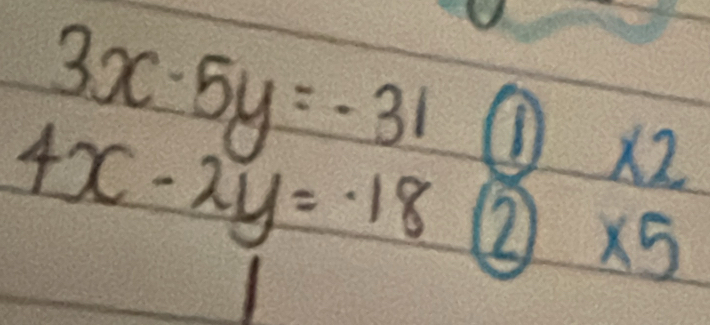 3x - 5y = - 31 ① ×2
4x - 2y = - 18 ② ×5